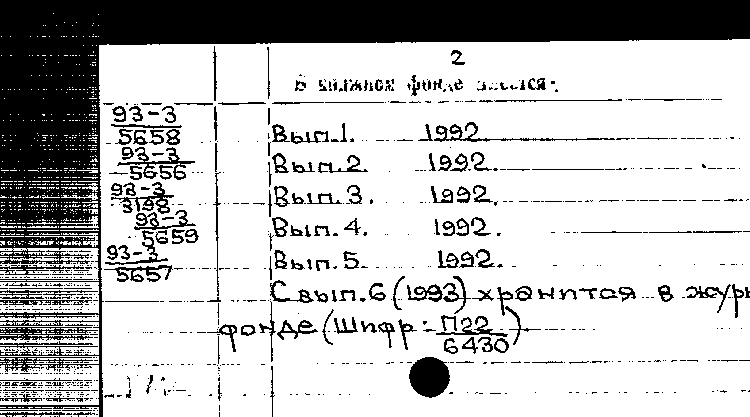 2
В книжном фонде имеется:
93-3
5658 Вып.1. 1992
93-3
5656 Вып.2. 1992.
93-3
3198 Вып.3. 1992.
93-3
5659 Вып.4. 1992.
93-3
5657 Вып.5. 1992.
С вып.6 (1993) хранится в журн
фонде (Шифр: П22
6430)